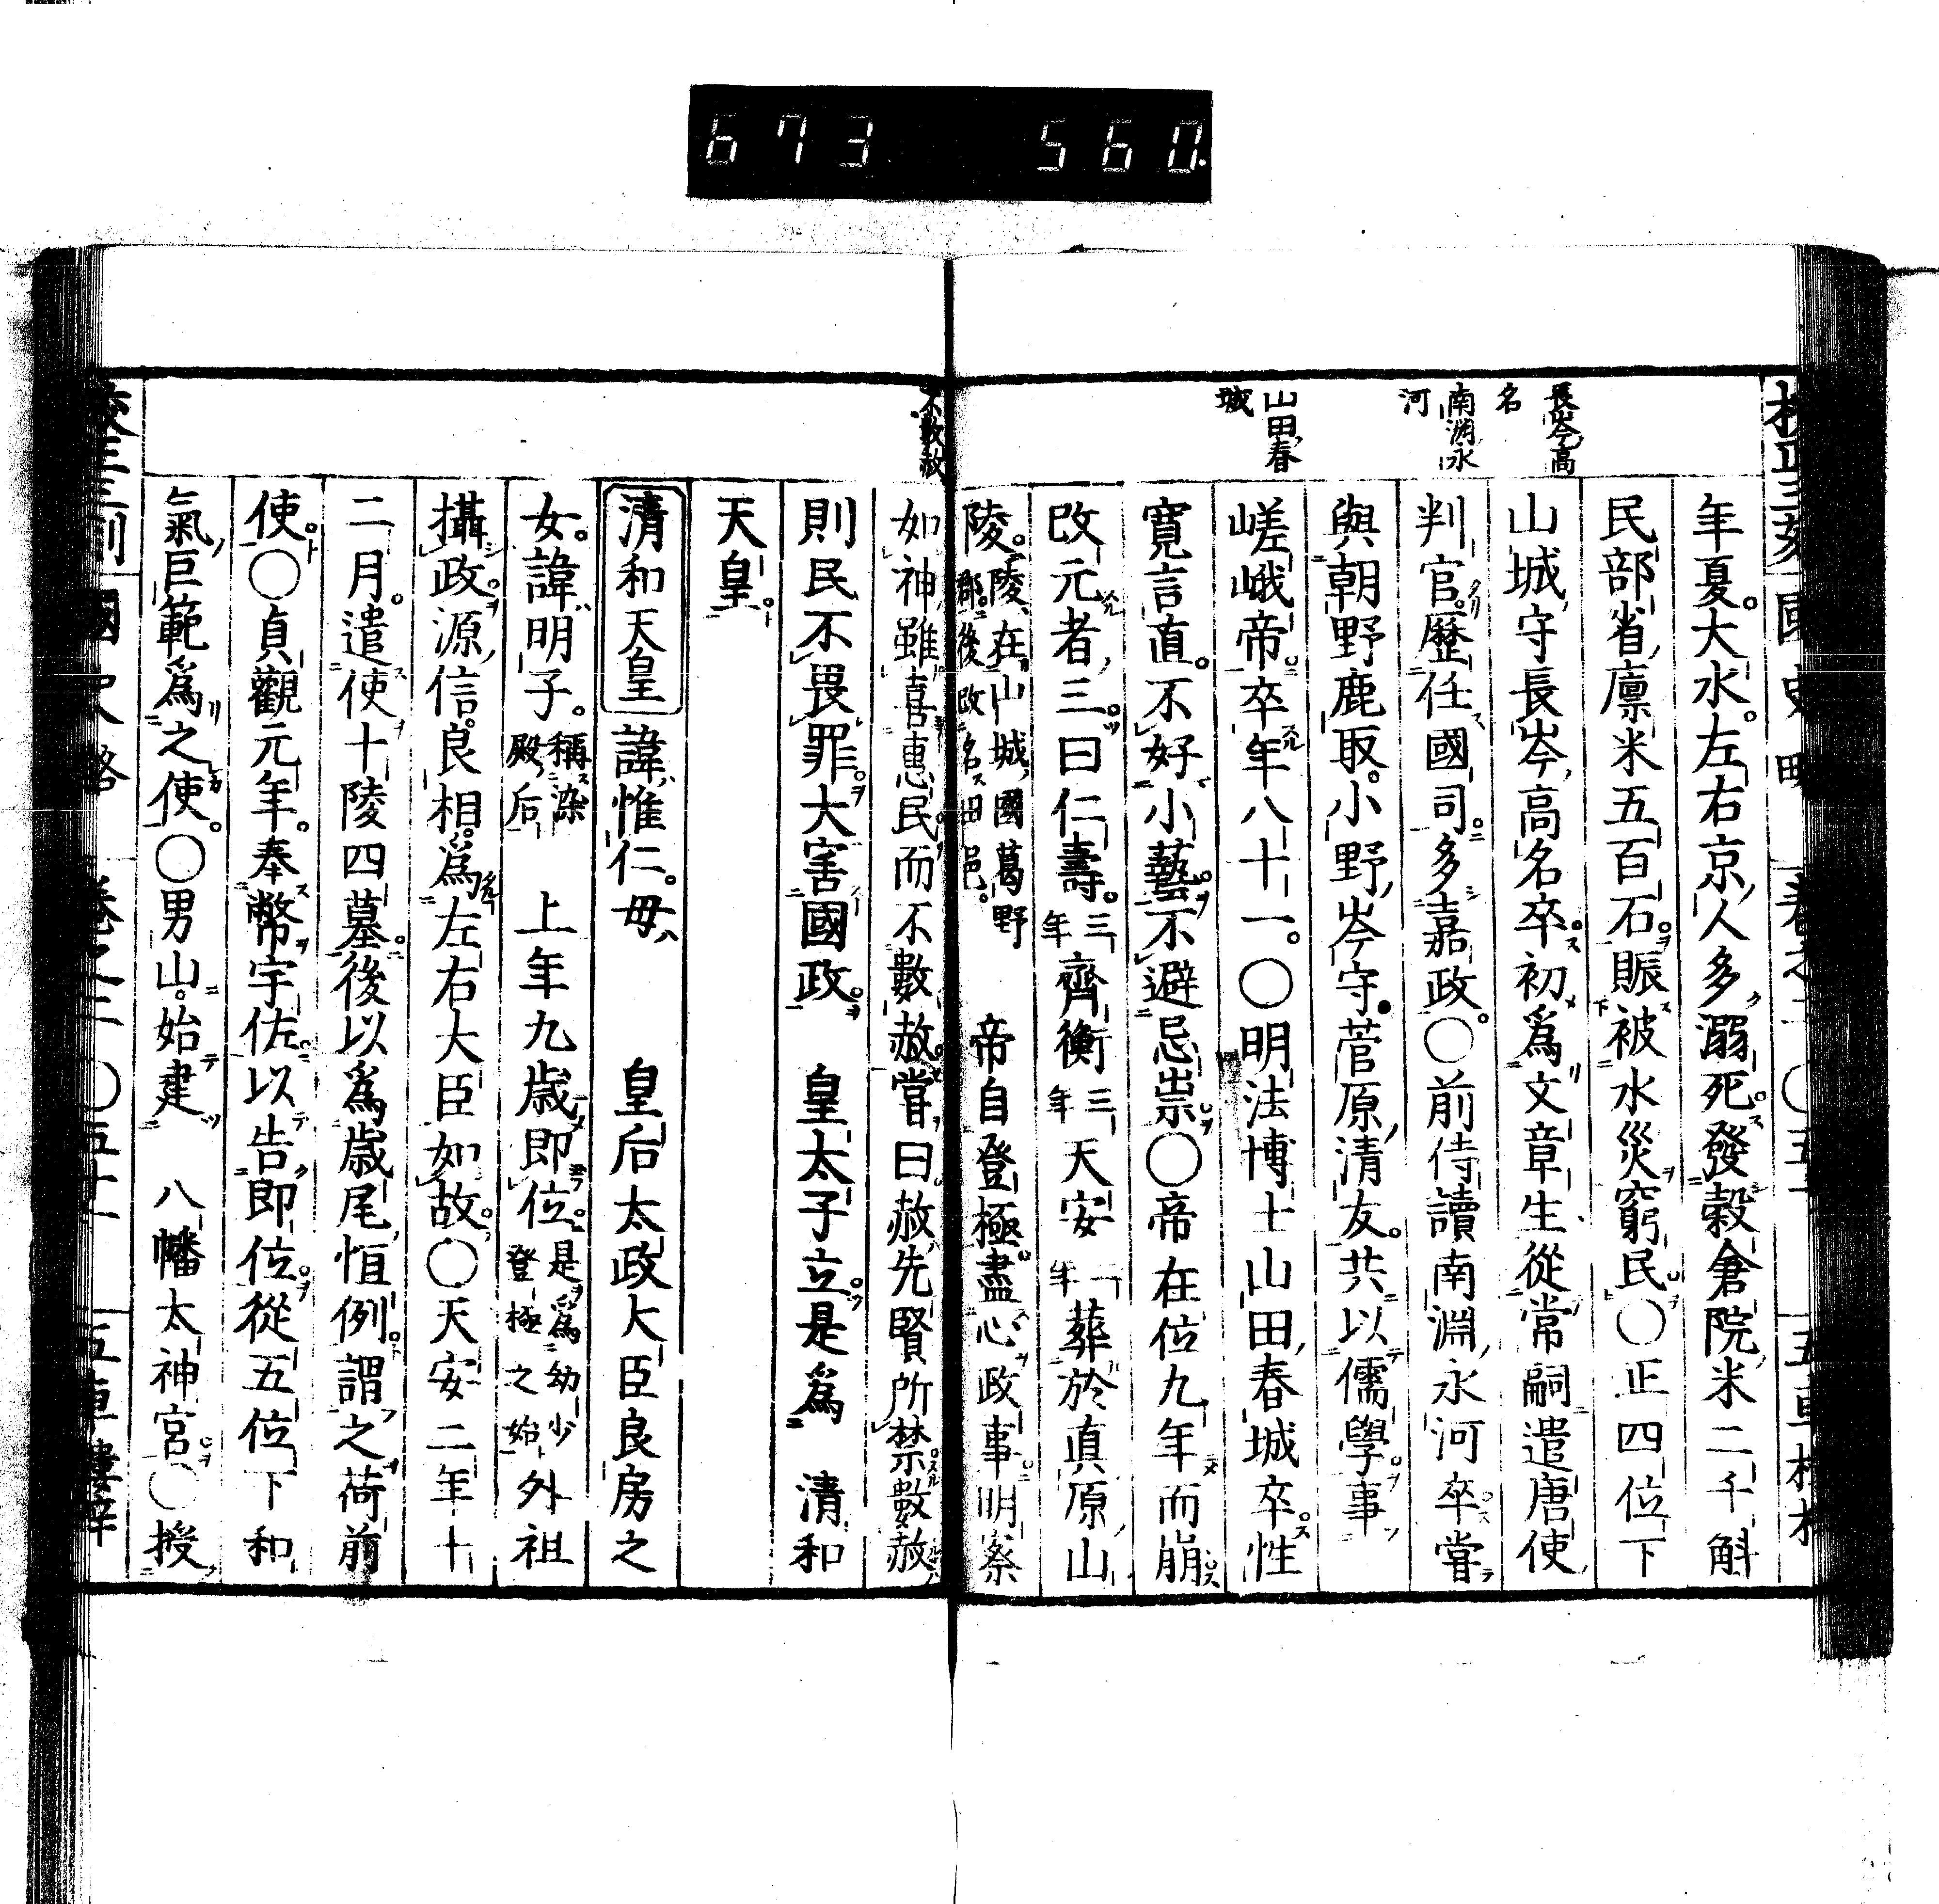 673 560
長岑高
名
南淵永
河
山田春
城
年夏大水左右京人多溺死發穀倉院米二千斛
民部省廩米五百石賑被水災窮民○正四位下
山城守長岑高名卒初爲文章生從常嗣遣唐使
判官歷任國司多嘉政○前侍讀南淵永河卒嘗
與朝野鹿取小野岑守菅原清友共以儒學事
嵯峨帝卒年八十一○明法博士山田春城卒性
寬言直不好小藝不避忌祟○帝在位九年而崩
改元者三曰仁壽三年齊衡三年天安一年葬於真原山
陵陵在山城國葛野郡後改名田邑 帝自登極盡心政事明察
不數赦
如神雖喜惠民而不數赦嘗曰赦先賢所禁數赦
則民不畏罪大害國政 皇太子立是爲 清和
天皇
清和天皇 諱惟仁母 皇后太政大臣良房之
女諱明子稱染殿后 上年九歲即位是爲幼少登極之始外祖
攝政源信良相爲左右大臣如故○天安二年十
二月遣使十陵四墓後以爲歲尾恒例謂之荷前
使○貞觀元年奉幣宇佐以告即位從五位下和
氣巨範爲之使○男山始建 八幡太神宮○授
國史略